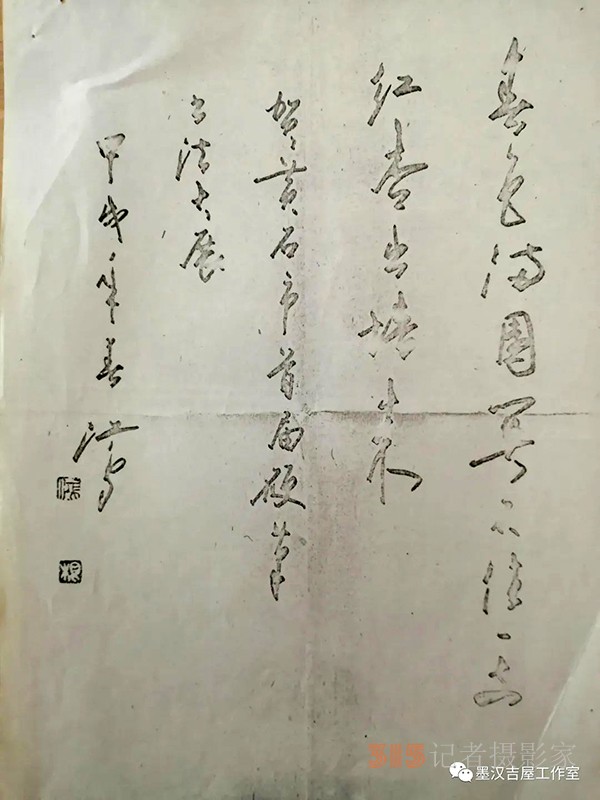 春色满园关不住一枝
红杏出墙来
贺黄石市首届硬笔
书法大展
甲戌年春
315记者摄影家
墨汉吉屋工作室